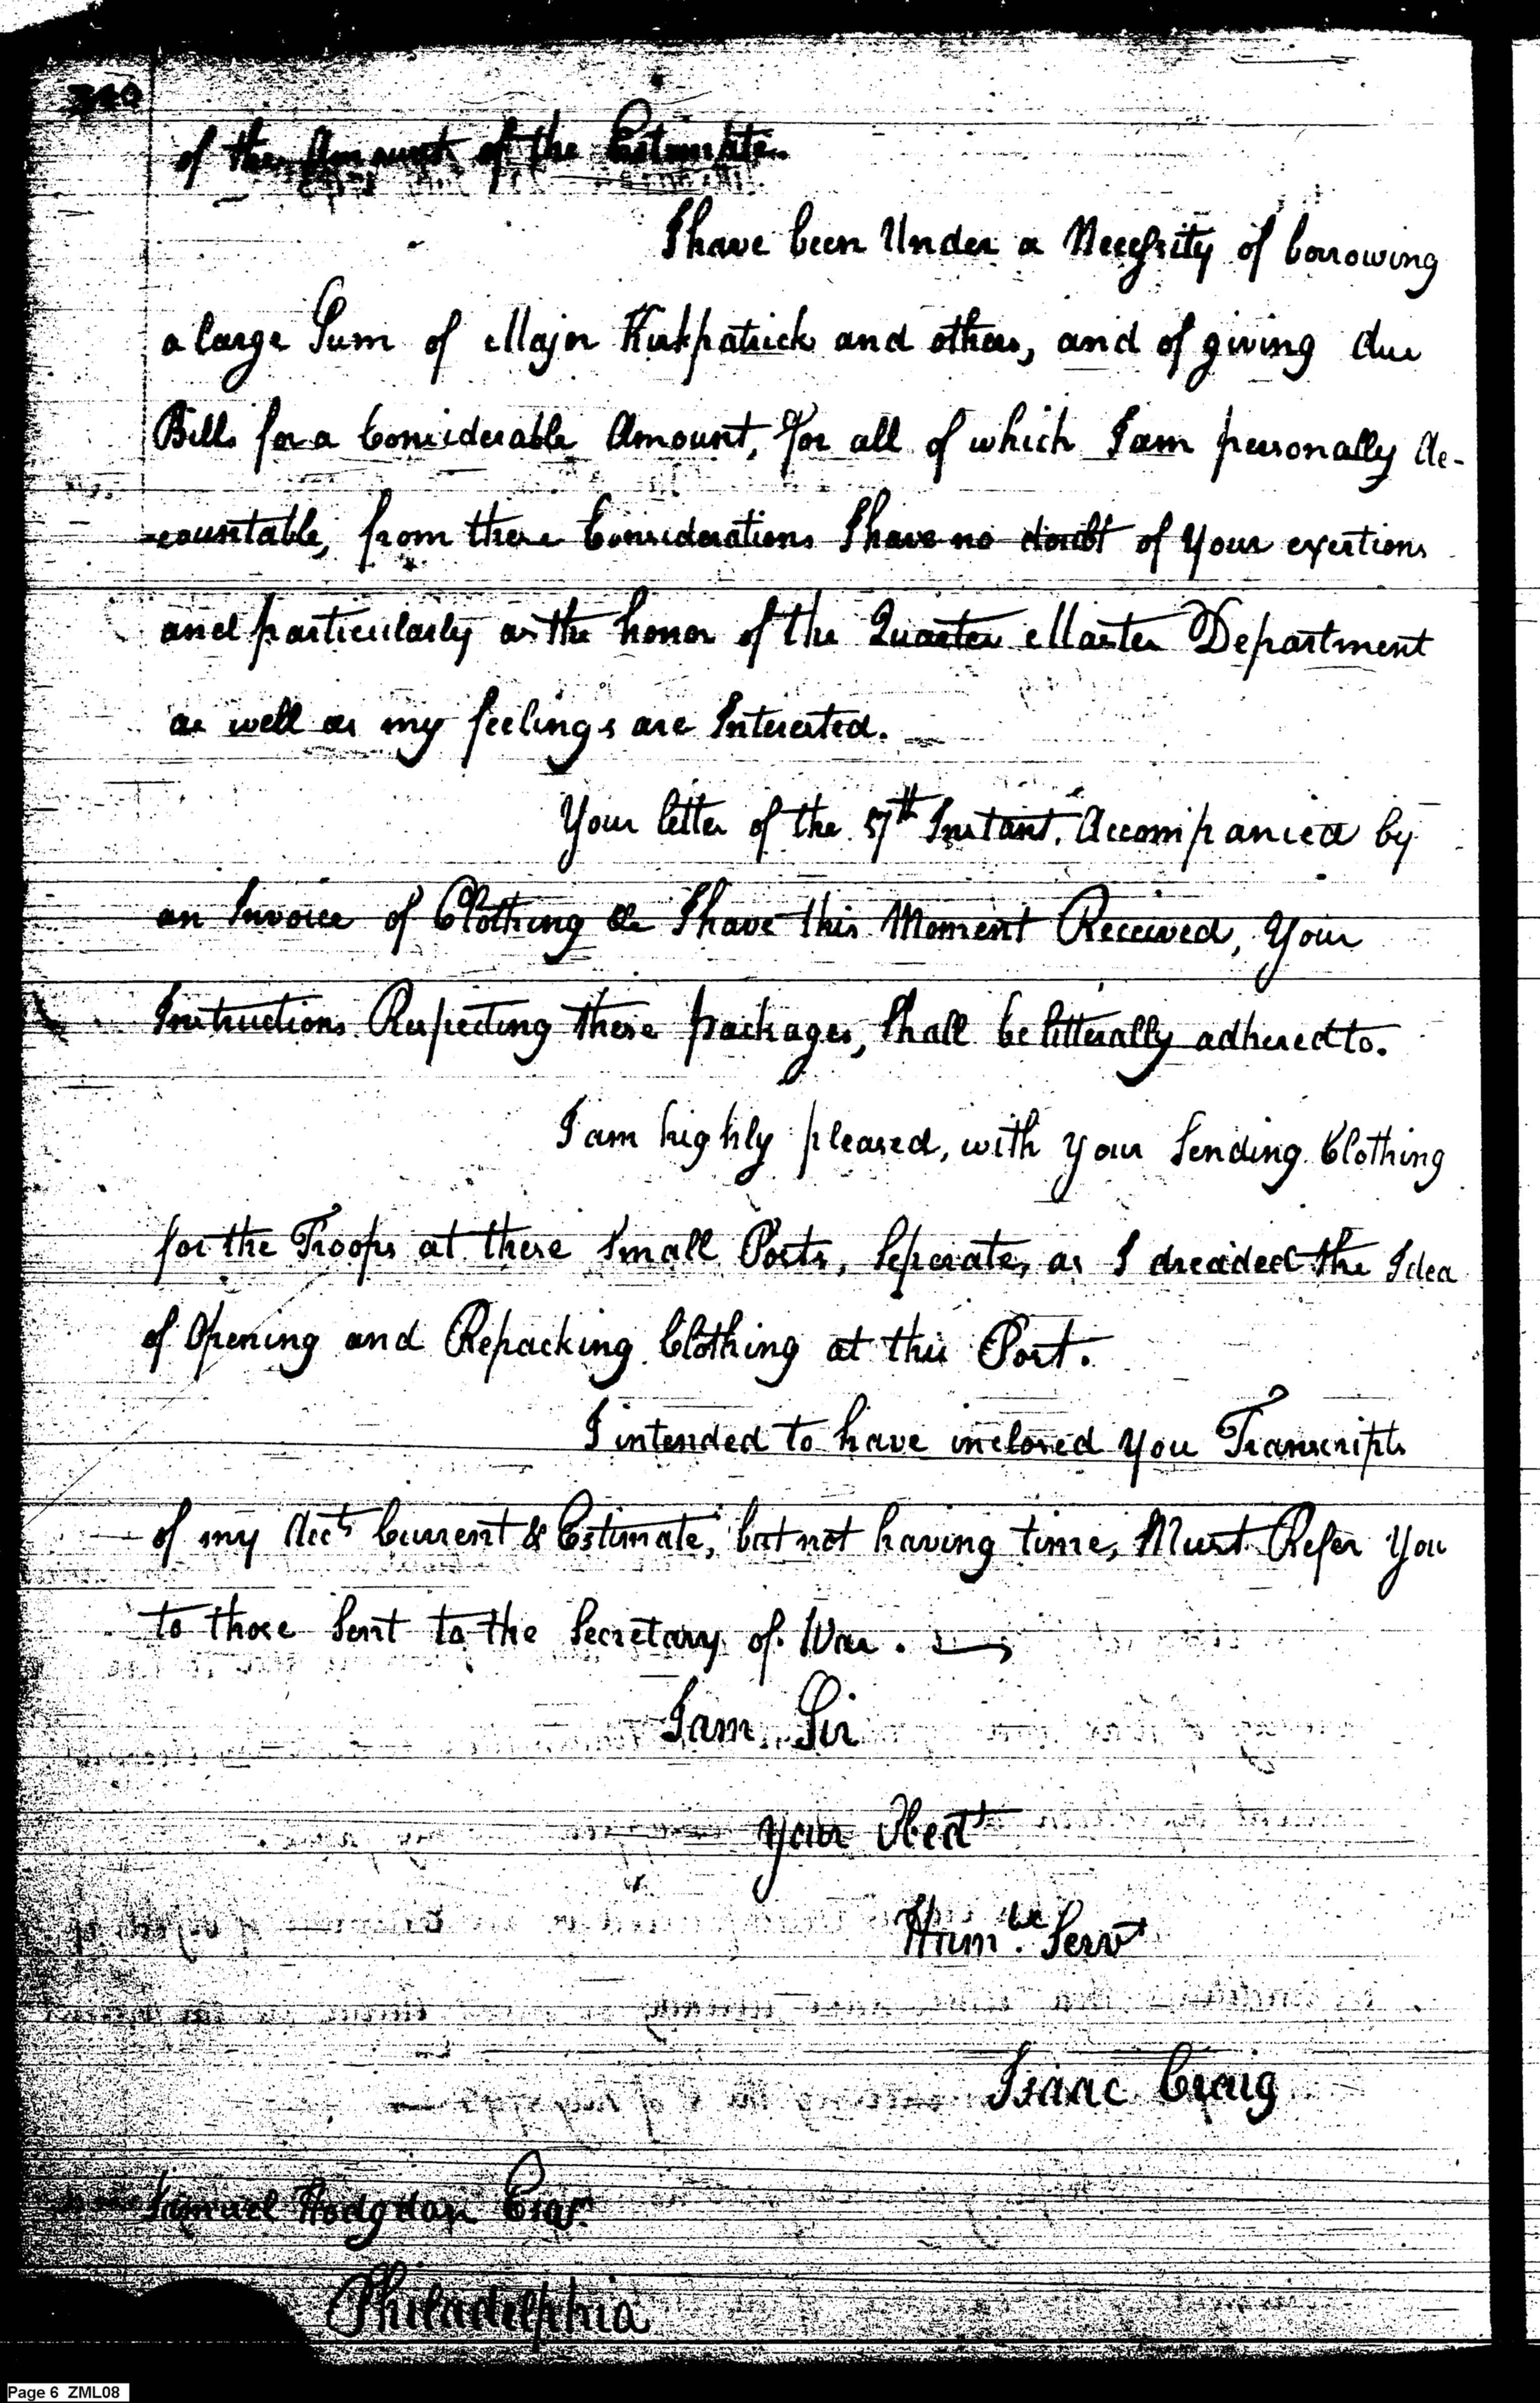 340
of the Amount of the Estimate.
I have been Under a Necessity of borrowing
a large Sum of Major Kirkpatrick and others, and of giving due
Bills for a Considerable Amount, for all of which I am personally Ac-
-countable, from these Considerations I have no doubt of Your exertions
and particularly as the honor of the Quarter Master Department
as well as my feelings are Interested.
Your letter of the 57th Instant. Accompanied by
an Invoice of Clothing &c I have this Moment Received, Your
Instructions Respecting these packages, Shall be litterally adhered to.
I am highly pleased, with your Sending Clothing
for the Troops at these Small Posts, Seperate, as I dreaded the Idea
of Opening and Repacking Clothing at this Post.
I intended to have inclosed you Transcripts
of my Acct Current & Estimate, but not having time, Must Refer You
to those Sent to the Secretary of War.
I am Sir
Your Obedt
Humbe Servt
Isaac Craig
Samuel Hodgdon Esqr.
Philadelphia
Page 6 ZML08